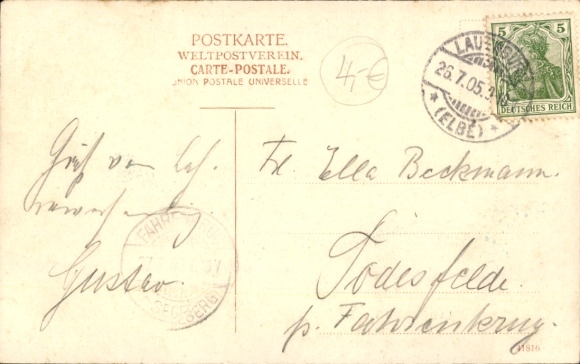 POSTKARTE.
WELTPOSTVEREIN.
CARTE-POSTALE.
UNION POSTALE UNIVERSELLE
4,-€
5 5
DEUTSCHES REICH
LAUENBURG
26.7.05.
* (ELBE) *
Gruß von
Gustav.
FAHRENKRUG
SEGEBERG
Frl. Ella Beckmann.
Todesfelde.
p. Fahrenkrug.
11816